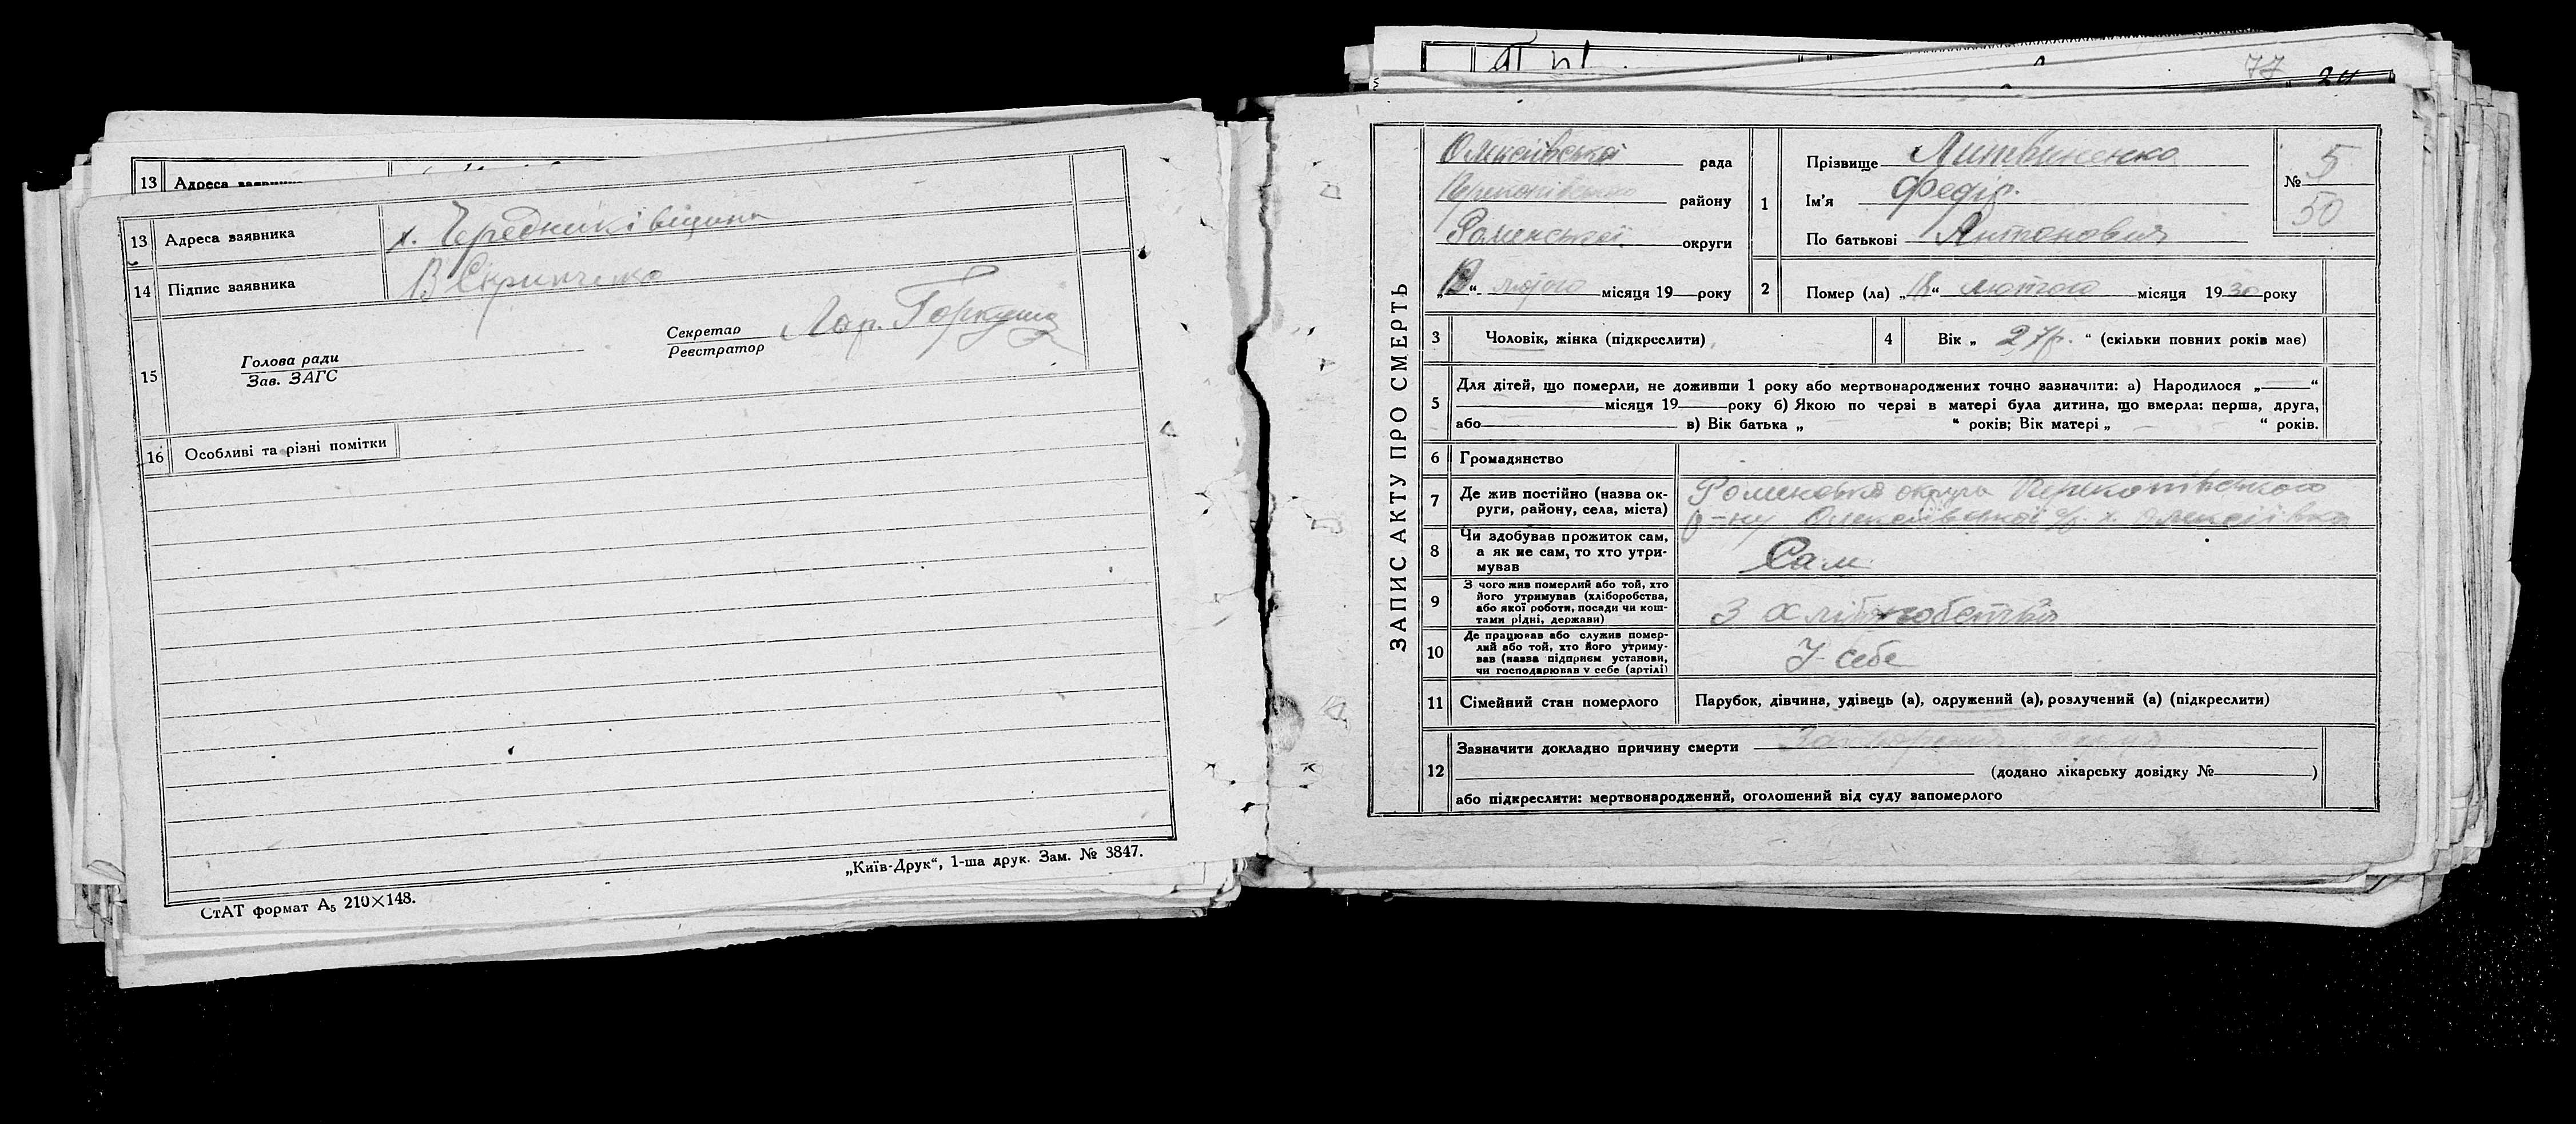 13 Адреса
13 Адреса заявника х. Чередниківщина
14 Підпис заявника В Скрипченко
15 Голова ради
Зав. ЗАГС
Секретар
Реєстратор
16 Особливі та різні помітки
СтАТ формат А5 210×148.
„Київ-Друк“, 1-ша друк. Зам. № 3847.
77
ЗАПИС АКТУ ПРО СМЕРТЬ
рада
району
Роменської округи
лютого місяця 19 року
1 Прізвище Литвиненко
Ім'я Федір.
По батькові Антонович
№ 5
50
2 Помер (ла) „ “ лютого місяця 19 30 року
3 Чоловік, жінка (підкреслити)
4 Вік „ 27р. “ (скільки повних років має)
5 Для дітей, що померли, не доживши 1 року або мертвонароджених точно зазначити: а) Народилося „ “
місяця 19 року б) Якою по черзі в матері була дитина, що вмерла: перша, друга,
або в) Вік батька „ “ років; Вік матері „ “ років.
6 Громадянство
7 Де жив постійно (назва ок-
руги, району, села, міста)
Роменська округа Перекопівського
р-ну Олексіївської с/р. х Олексіївка
8 Чи здобував прожиток сам,
а як не сам, то хто утри-
мував
Сам
9 З чого жив померлий або той, хто
його утримував (хліборобства,
або якої роботи, посади чи кош-
тами рідні, держави)
З хліборобства
10 Де працював або служив помер-
лий або той, хто його утриму-
вав (назва підприєм установи,
чи господарював у себе (артілі)
У себе
11 Сімейний стан померлого Парубок, дівчина, удівець (а), одружений (а), розлучений (а) (підкреслити)
12 Зазначити докладно причину смерти
(додано лікарську довідку № )
або підкреслити: мертвонароджений, оголошений від суду запомерлого